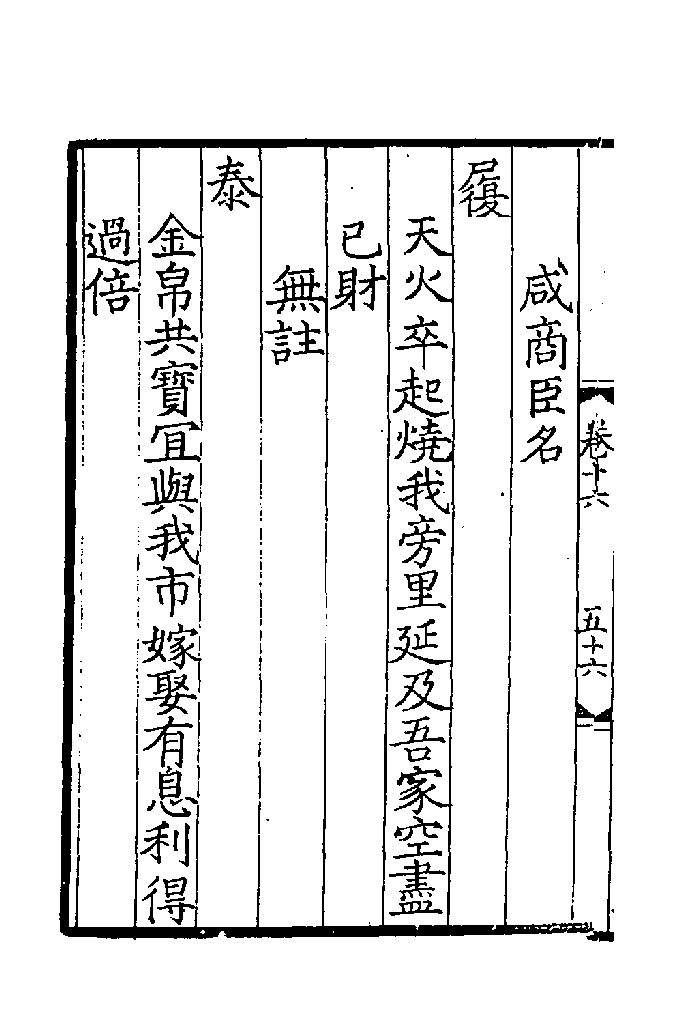 卷十六
五十六
咸商臣名
履
天火卒起燒我旁里延及吾家空盡
已財
無註
泰
金帛共寶冝與我市嫁娶有息利得
過倍